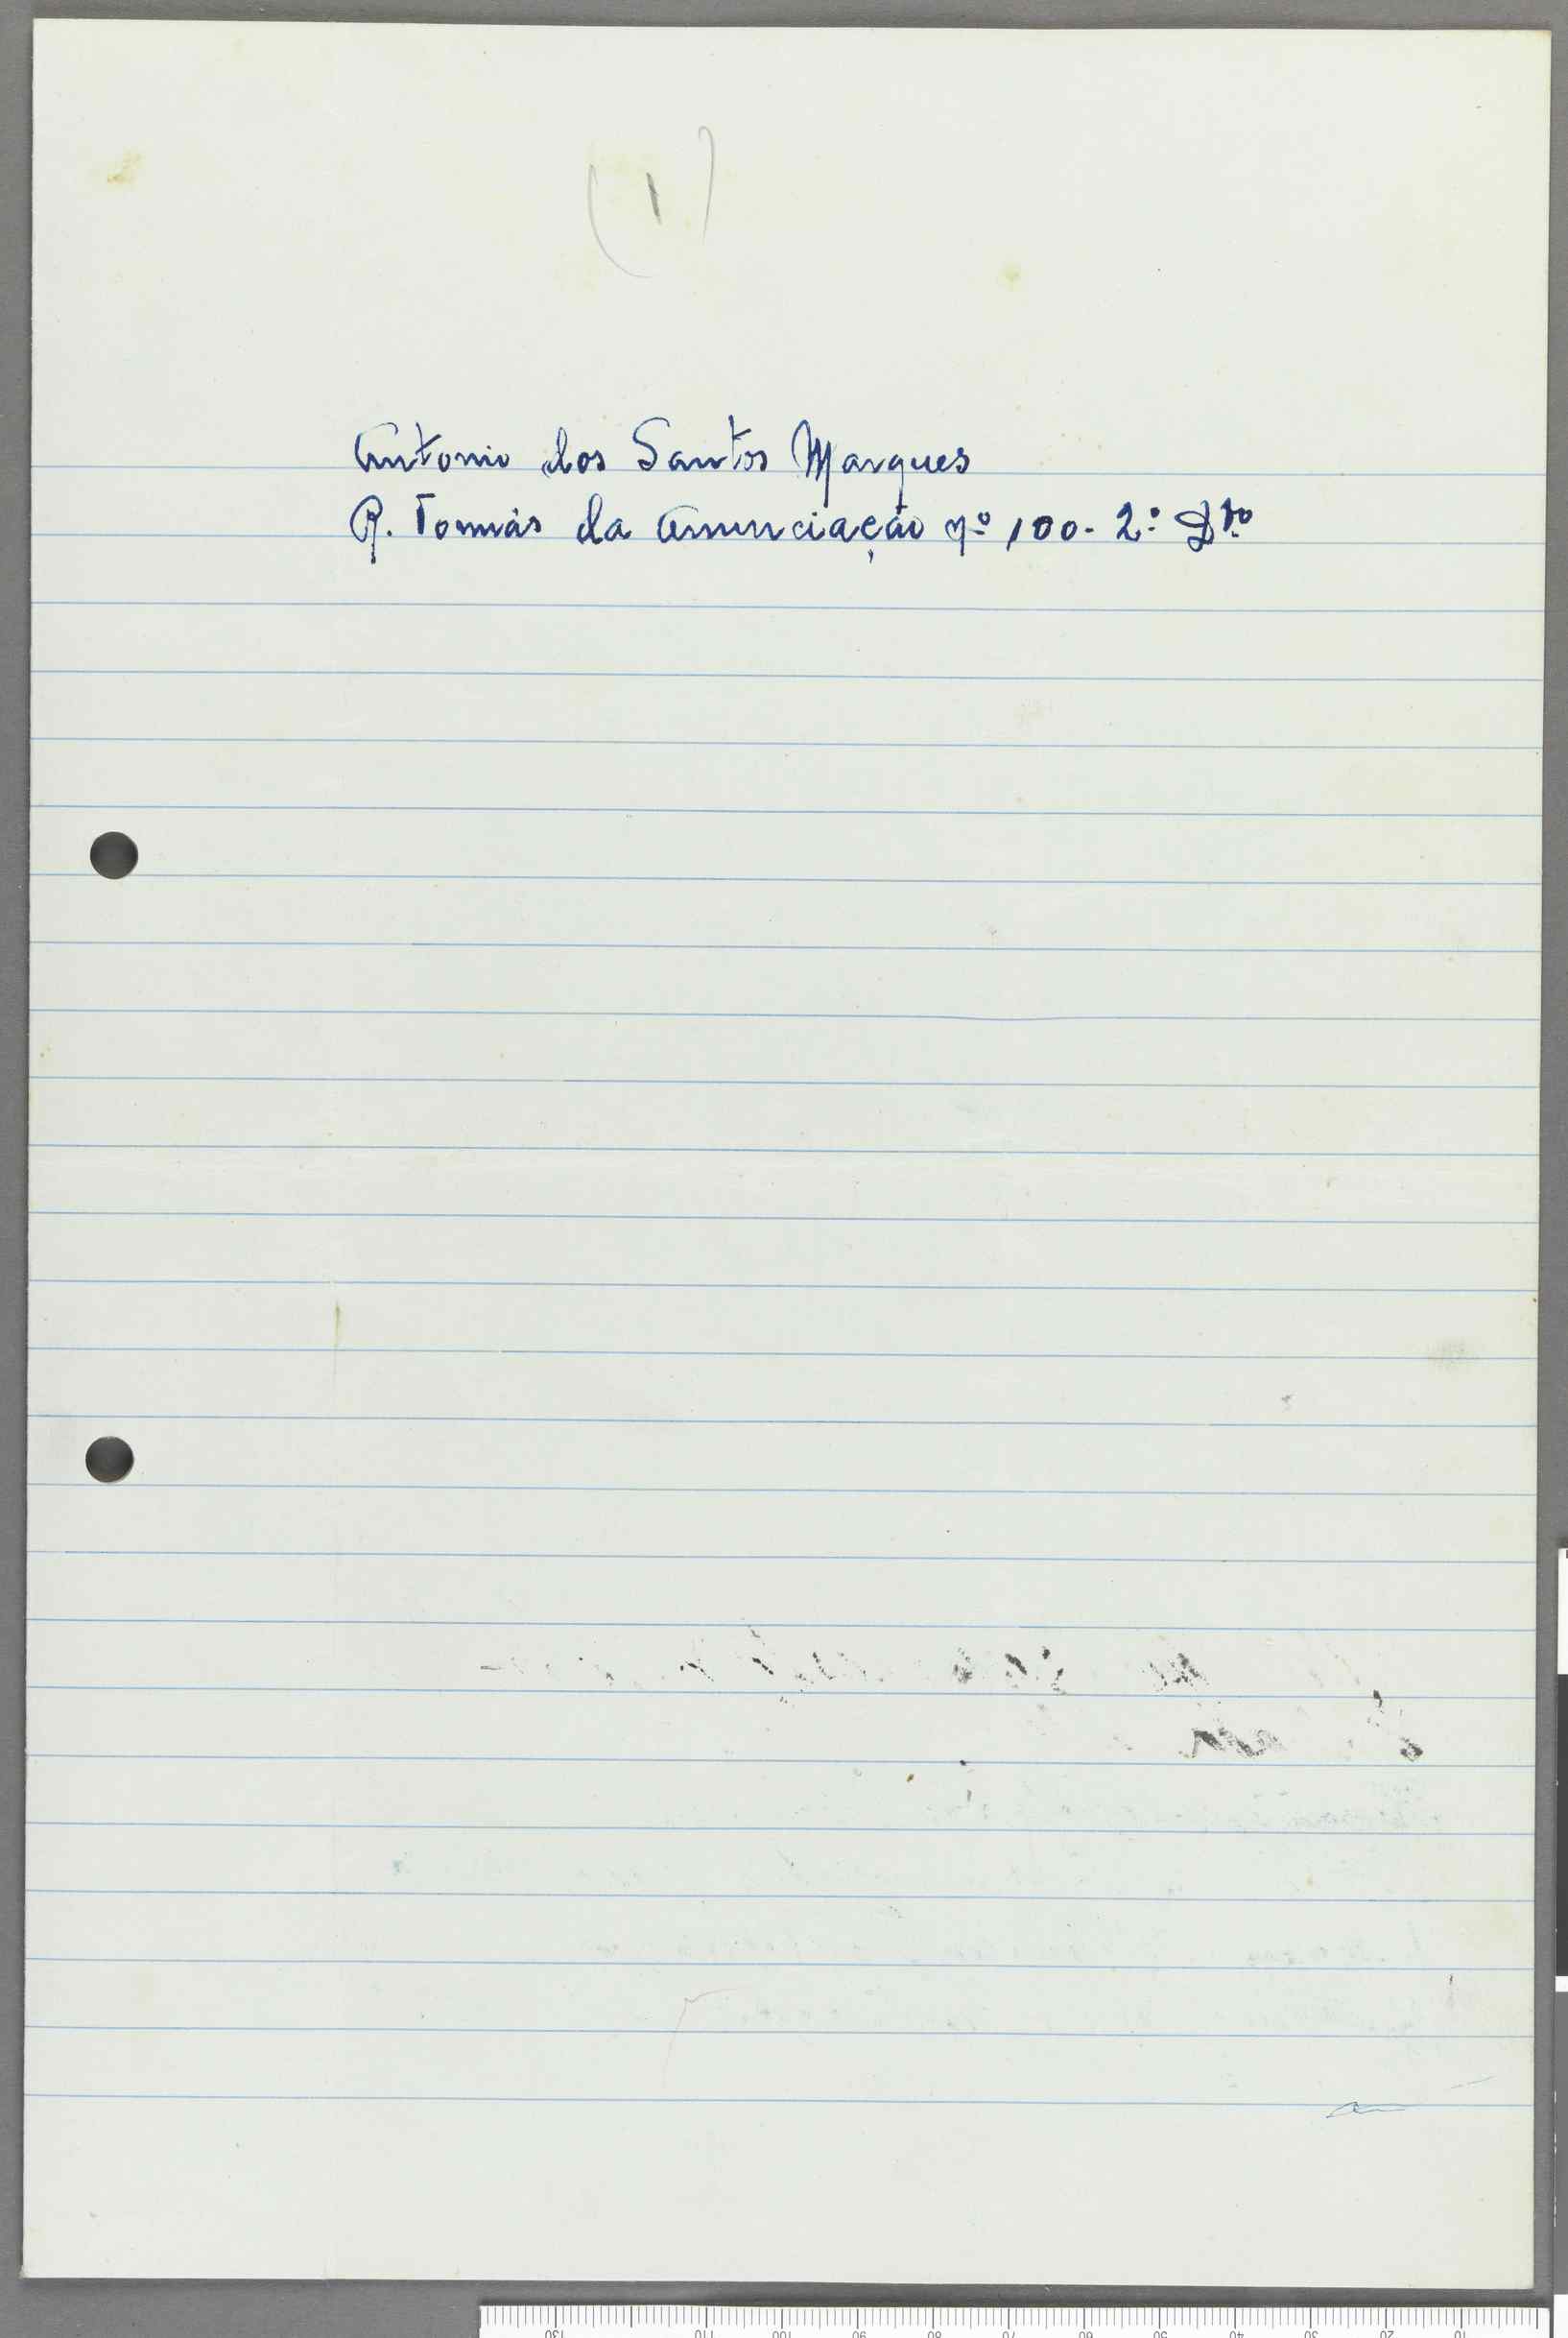 (1)
Antonio dos Santos Marques
R. Tomás da Anunciação nº 100-2º Dto